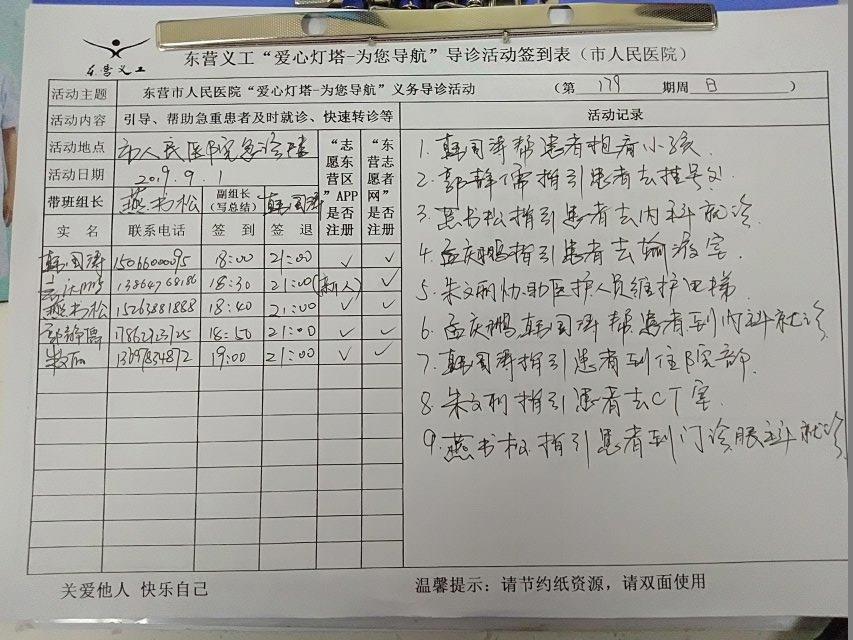 东营义工
东营义工“爱心灯塔-为您导航”导诊活动签到表（市人民医院）
活动主题 东营市人民医院“爱心灯塔-为您导航”义务导诊活动 （第 179 期周 日 ）
活动内容 引导、帮助急重患者及时就诊、快速转诊等
活动地点 市人民医院急诊楼
活动日期 2019.9.1
带班组长 燕书松 副组长（写总结） 韩国涛
“志愿东营区”APP是否注册
“东营志愿者网”是否注册
实名 联系电话 签到 签退
韩国涛 15066000095 18:00 21:00 ✓ ✓
13864768186 18:30 21:00 (新人) ✓
燕书松 15263881888 18:40 21:00 ✓ ✓
郭静儒 17862123725 18:50 21:00 ✓ ✓
13697834872 19:00 21:00 ✓ ✓
活动记录
1. 韩国涛帮患者抱看小孩
2. 郭静儒指引患者去挂号处
3. 燕书松指引患者去内科就诊
4. 孟庆鹏指引患者去输液室
5. 朱文丽协助医护人员维护电梯
6. 孟庆鹏韩国涛帮患者到内科就诊
7. 韩国涛指引患者到住院部
8. 朱文丽指引患者去CT室
9. 燕书松指引患者到门诊眼科就诊
关爱他人 快乐自己
温馨提示：请节约纸资源，请双面使用